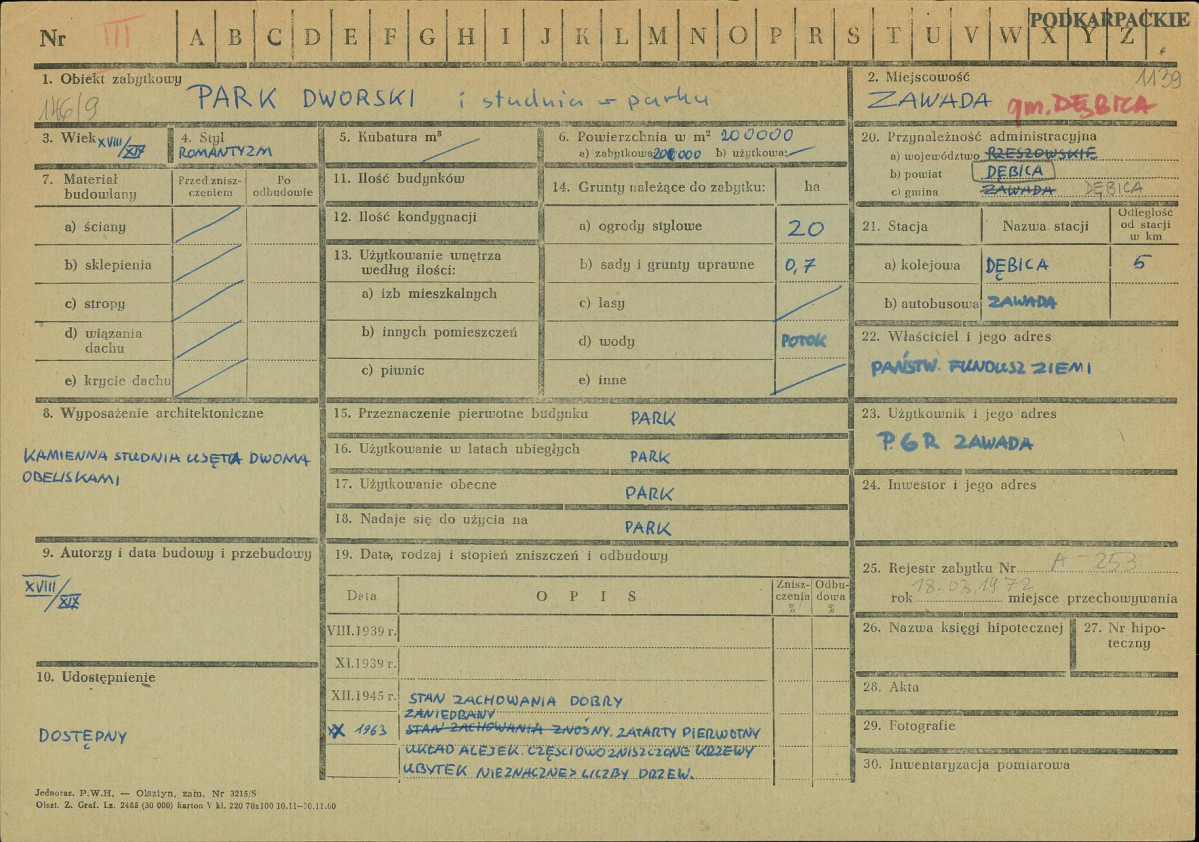 PODKARPACKIE
Nr III A B C D E F G H I J K L M N O P R S T U V W X Y Z
1139
1. Obiekt zabytkowy
146/9
PARK DWORSKI i studnia w parku
2. Miejscowość
ZAWADA gm. DĘBICA
3. Wiek XVIII/XIX
4. Styl
ROMANTYZM
5. Kubatura m³
6. Powierzchnia w m² 200000
a) zabytkowa: 200000 b) użytkowa:
20. Przynależność administracyjna
a) województwo RZESZOWSKIE
b) powiat DĘBICA
c) gmina ZAWADA DĘBICA
7. Materiał budowlany
Przed znisz-
czeniem
Po
odbudowie
a) ściany
b) sklepienia
c) stropy
d) wiązania
dachu
e) krycie dachu
11. Ilość budynków
12. Ilość kondygnacji
13. Użytkowanie wnętrza
według ilości:
a) izb mieszkalnych
b) innych pomieszczeń
c) piwnic
14. Grunty należące do zabytku: ha
a) ogrody stylowe 20
b) sady i grunty uprawne 0,7
c) lasy
d) wody POTOK
e) inne
21. Stacja
Nazwa stacji
Odległość
od stacji
w km
a) kolejowa DĘBICA 5
b) autobusowa ZAWADA
22. Właściciel i jego adres
PAŃSTW. FUNDUSZ ZIEMI
8. Wyposażenie architektoniczne
KAMIENNA STUDNIA UJĘTA DWOMA
OBELISKAMI
15. Przeznaczenie pierwotne budynku PARK
16. Użytkowanie w latach ubiegłych PARK
17. Użytkowanie obecne PARK
18. Nadaje się do użycia na PARK
23. Użytkownik i jego adres
P.G.R ZAWADA
24. Inwestor i jego adres
9. Autorzy i data budowy i przebudowy
XVIII/XIX
19. Data, rodzaj i stopień zniszczeń i odbudowy
Data
OPIS
Znisz-
czenia
%
Odbu-
dowa
%
VIII.1939 r.
XI.1939 r.
XII.1945 r. STAN ZACHOWANIA DOBRY
ZANIEDBANY
X 1963 STAN ZACHOWANIA ZNOŚNY. ZATARTY PIERWOTNY
UKŁAD ALEJEK. CZĘŚCIOWO ZNISZCZONE KRZEWY
UBYTEK NIEZNACZNEJ LICZBY DRZEW.
25. Rejestr zabytku Nr A-253
rok 18.03.1972 miejsce przechowywania
26. Nazwa księgi hipotecznej
27. Nr hipo-
teczny
28. Akta
29. Fotografie
30. Inwentaryzacja pomiarowa
10. Udostępnienie
DOSTĘPNY
Jednoraz. P.W.H. — Olsztyn, zam. Nr 3215/S
Olszt. Z. Graf. Lz. 2455 (30 000) karton V kl. 220 70x100 10.11-30.11.60